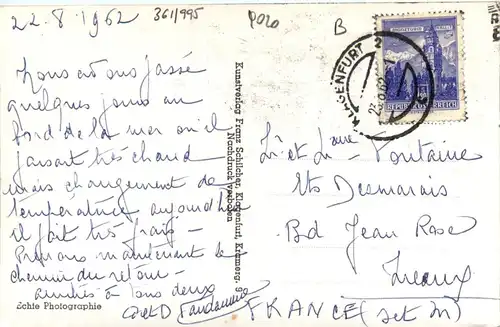 22.8.1962
361/995
Polo
B
Nous avons passé
quelques jours au
bord de la mer ou il
faisait très chaud
mais changement de
température, aujourd'hui
il fait très frais -
Prenons maintenant le
chemin du retour -
amitiés à tous deux
Echte Photographie
Kunstverlag Franz Schilcher, Klagenfurt, Kramerg.
Nachdruck verboten
KLAGENFURT
2
MÜNZTURM HALL I. T.
REPUBLIK ÖSTERREICH
Mr et Mme Fontaine
Ets Desmarais
Bd Jean Rose
Meaux
FRANCE (set M)